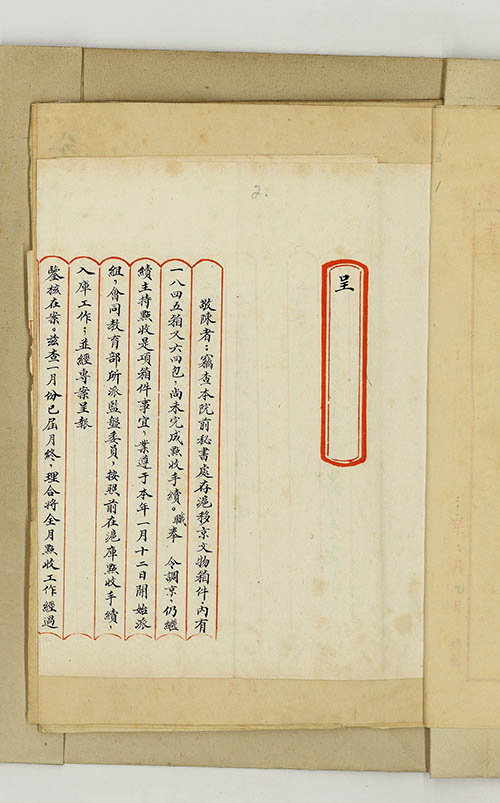 2.
呈
敬陳者：竊查本院前秘書處存滬移京文物箱件，內有
一八四五箱又六四包，尚未完成點收手續。職奉 令調京，仍繼
續主持點收是項箱件事宜，業遵于本年一月十二日開始派
組，會同教育部所派監盤委員，按照前在滬庫點收手續，
入庫工作；並經專案呈報
鑒核在案。茲查一月份已屆月終，理合將全月點收工作經過